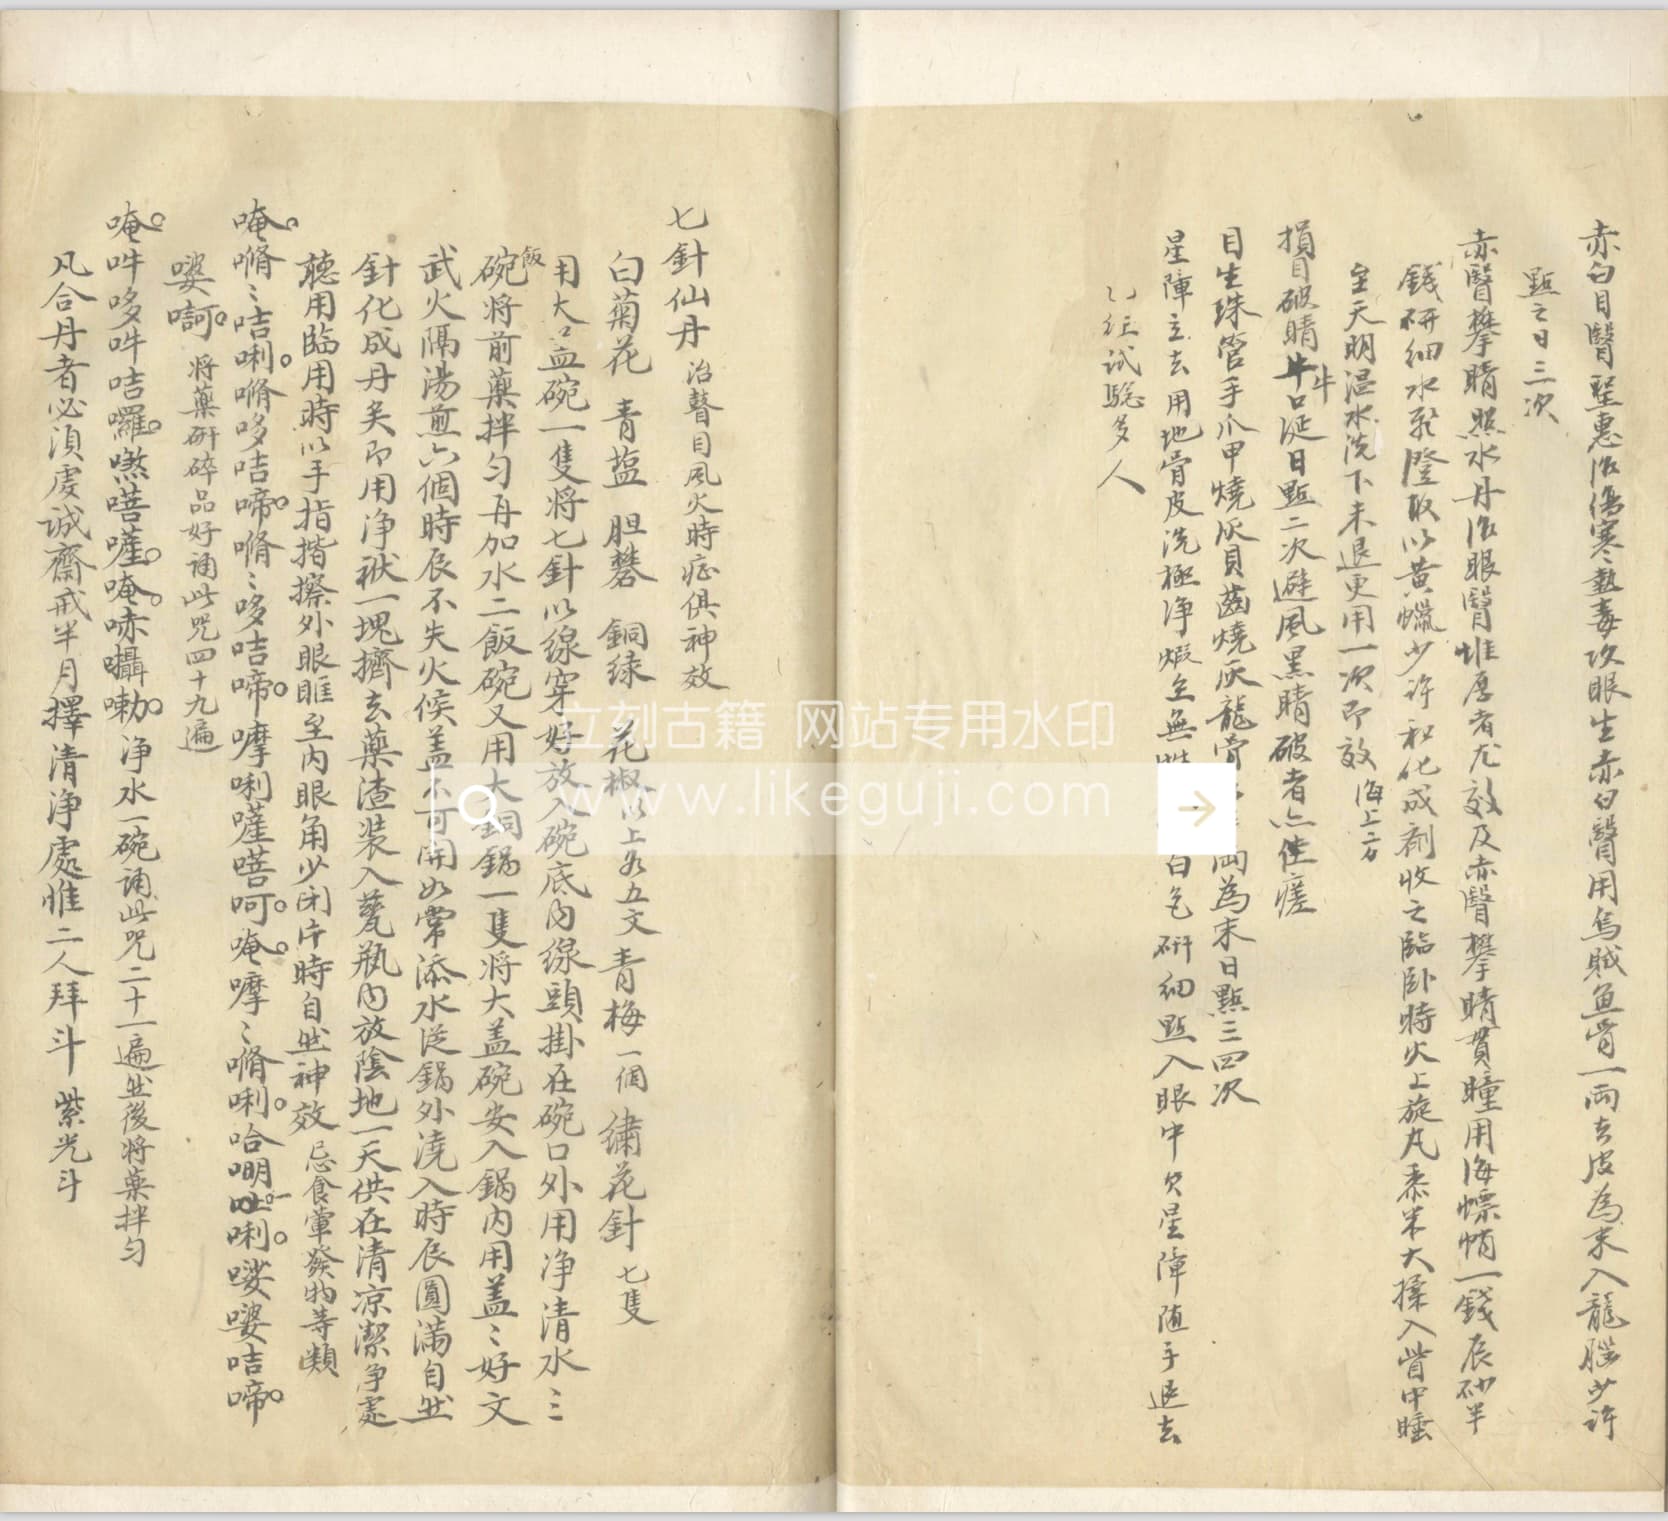 赤白目瞖聖惠治傷寒熱毒攻眼生赤白瞖用烏賊魚骨一兩去皮為末入龍腦少許
點之日三次
赤瞖攀睛照水丹治眼瞖惟厚者尤效及赤瞖攀睛貫瞳用海螵蛸一錢辰砂半
錢研細水飛澄取以黃蠟少許和化成劑收之臨卧時火上旋丸黍米大揉入眥中睡
至天明温水洗下未退更用一次即效 海上方
損目破睛牛口涎日點二次避風黑睛破者亦佳瘥
牛
目生珠管手爪甲燒灰貝齒燒灰龍骨 兩為末日點三四次
星障立去用地骨皮洗極淨煅至無 白色研細點入眼中欠星障随手退去
已经試驗多人
七針仙丹 治瞽目風火時症俱神效
白菊花 青盐 胆礬 銅緑 花椒以上各五文青梅一個 繡花針 七隻
用大口盖碗一隻將七針以線穿好放入碗底内線頭掛在碗口外用净清水三
飯
碗將前藥拌匀再加水二飯碗又用大銅鍋一隻將大盖碗安入鍋内用盖〻好文
武火隔湯煎六個時辰不失火候盖不可開如常添水従鍋外澆入時辰圓滿自然
針化成丹矣即用净袱一塊擠去藥渣装入甆瓶内放陰地一天供在清凉潔净處
聽用臨用時以手指揩擦外眼眶至内眼角少闭片時自然神效 忌食葷發物等類
唵嚩〻咭唎嚩哆咭啼嚩〻哆咭啼嚤唎薩菩呵唵嚤〻嚩唎哈嘲吐唎㗌婆咭啼
婆嗬 將藥研碎品好誦此咒四十九遍
唵吽哆吽咭囉 唵 囁嘞 净水一碗誦此咒二十一遍然後将藥拌匀
凡合丹者必須虔诚齋戒半月擇清净處惟二人拜斗 紫光斗
立刻古籍 网站专用水印
www.likeguji.com